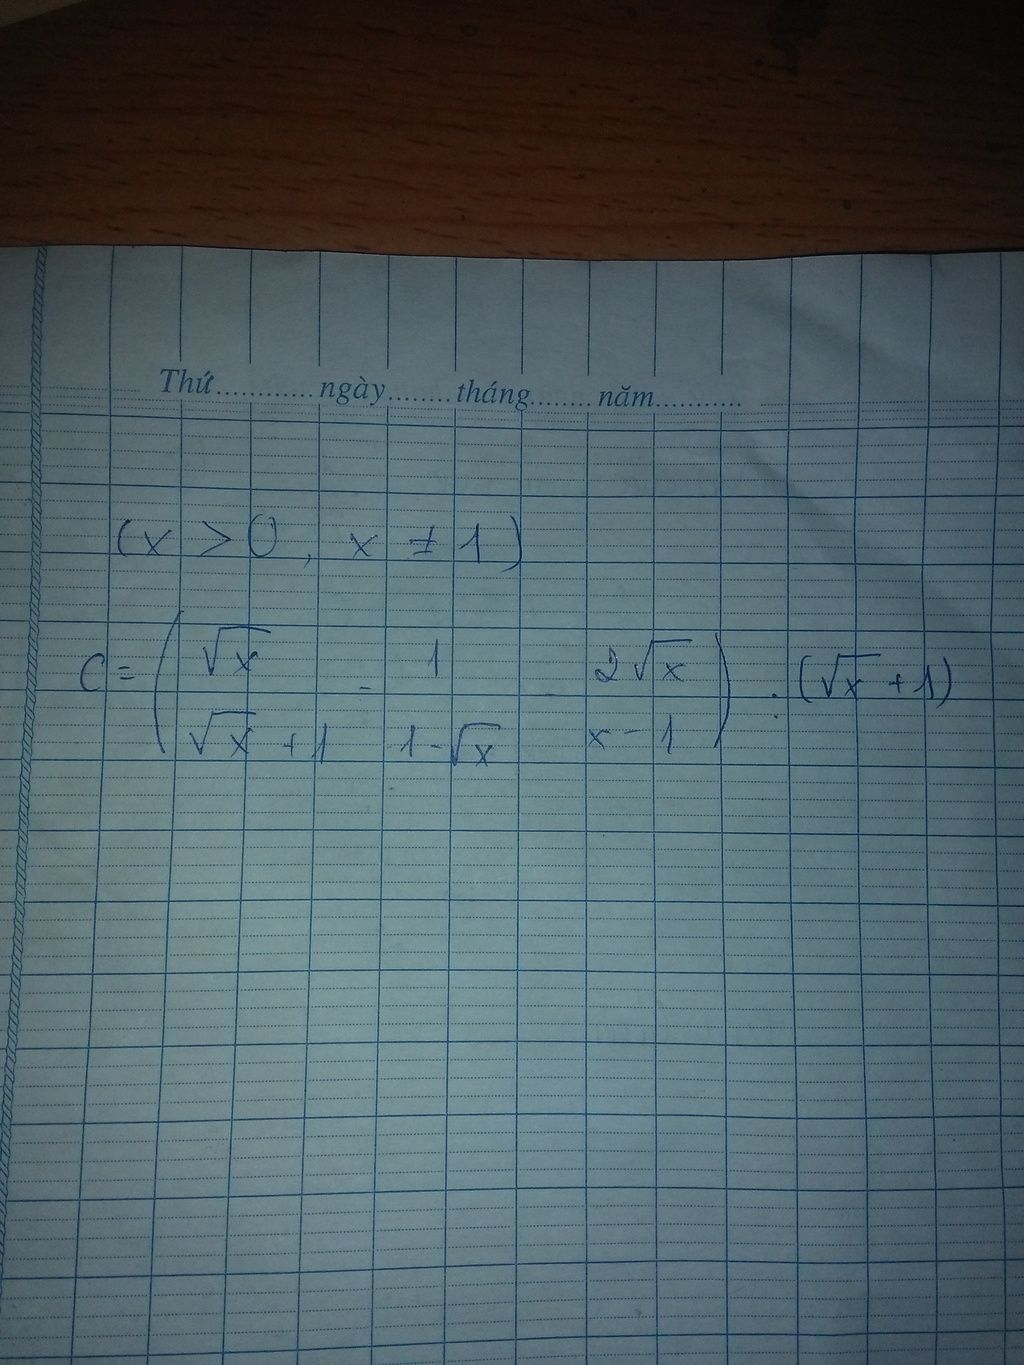 Thứ............ngày........tháng........năm...........
(x > 0, x ≠ 1)
C = (√x/(√x + 1) - 1/(1 - √x) - 2√x/(x - 1)) : (√x + 1)